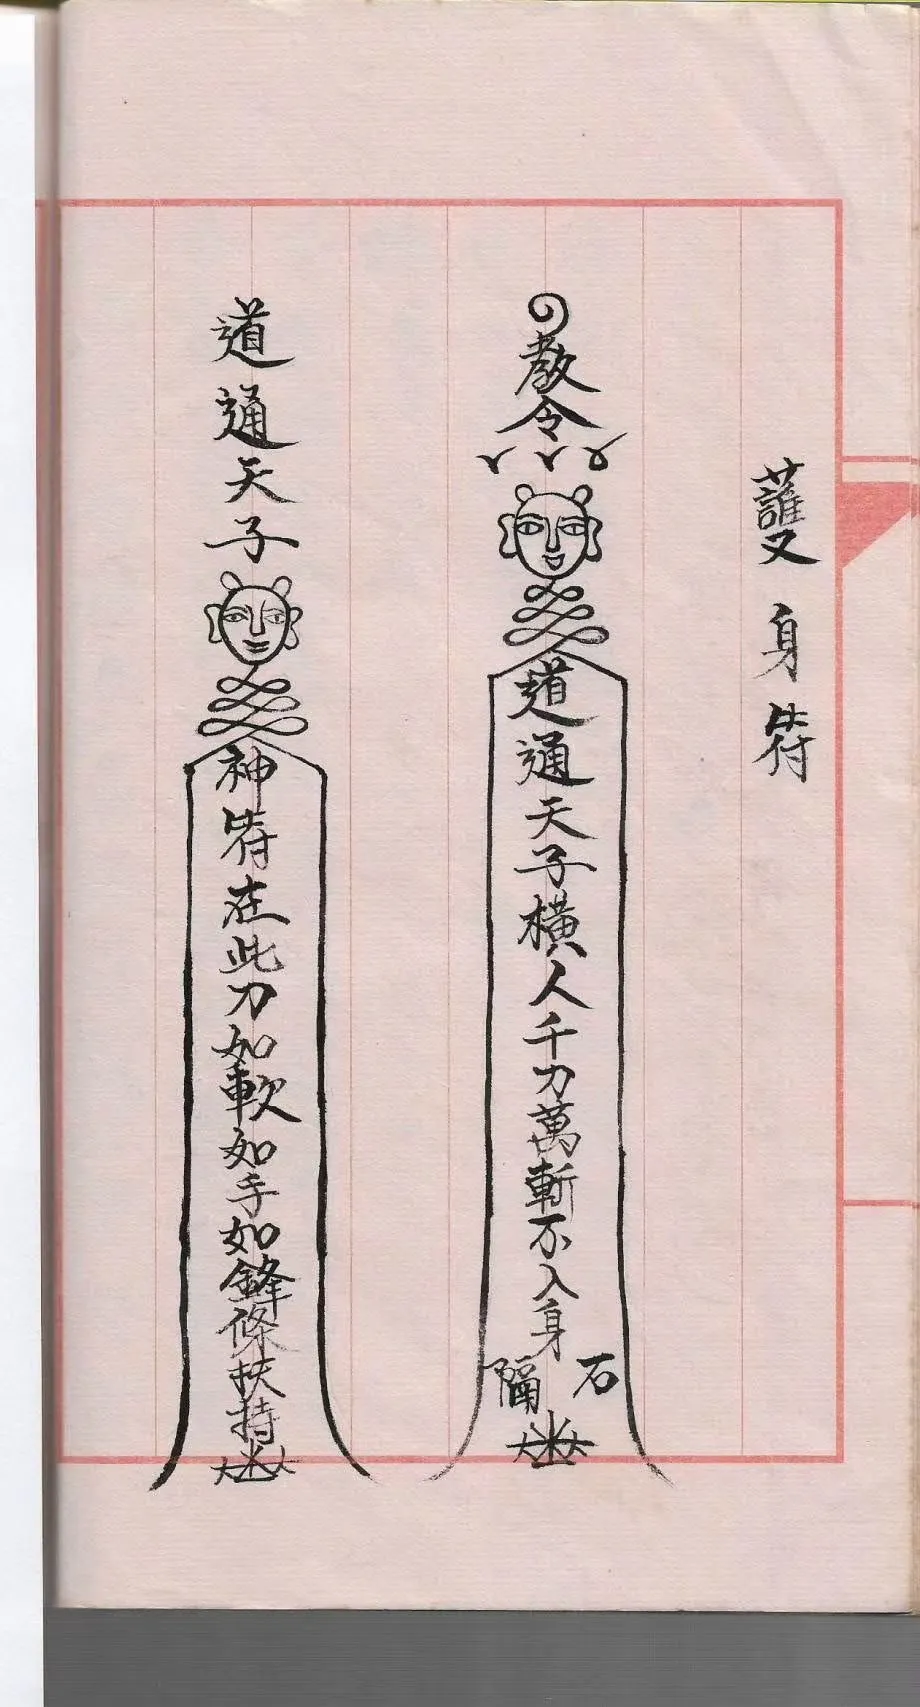 護身符
教令
道通天子橫人千刀萬斬不入身
石隔
道通天子
神符在此刀如軟如手如鋒條扶持